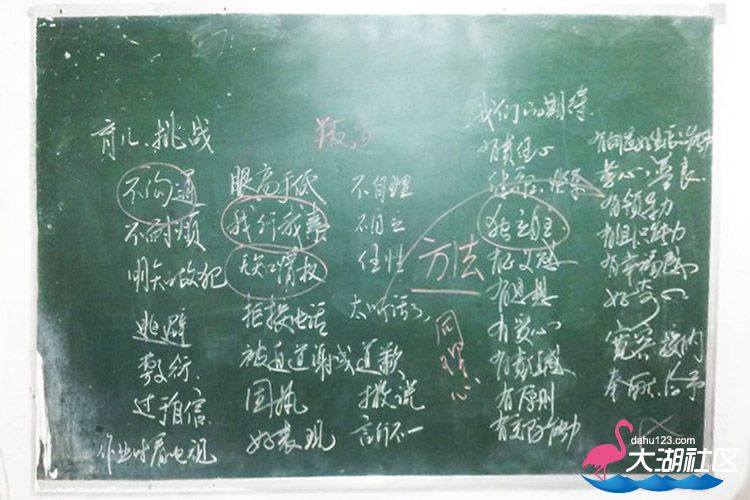 育儿、挑战
不沟通
不耐烦
明知故犯
逃避
敷衍
过于自信
作业时看电视
叛逆
眼高手低
我行我素
无知情权
拒接电话
被动道谢或道歉
固执
好表现
不自理
不自立
任性
太听话了
撒谎
言行不一
方法
同理心
我们的期待
有责任心
独立自主
有正义感
有思想
有爱心
有原则
善良
有领导力
有幸福感
好奇心
宽容 接纳
给予
dahu123.com
大湖社区